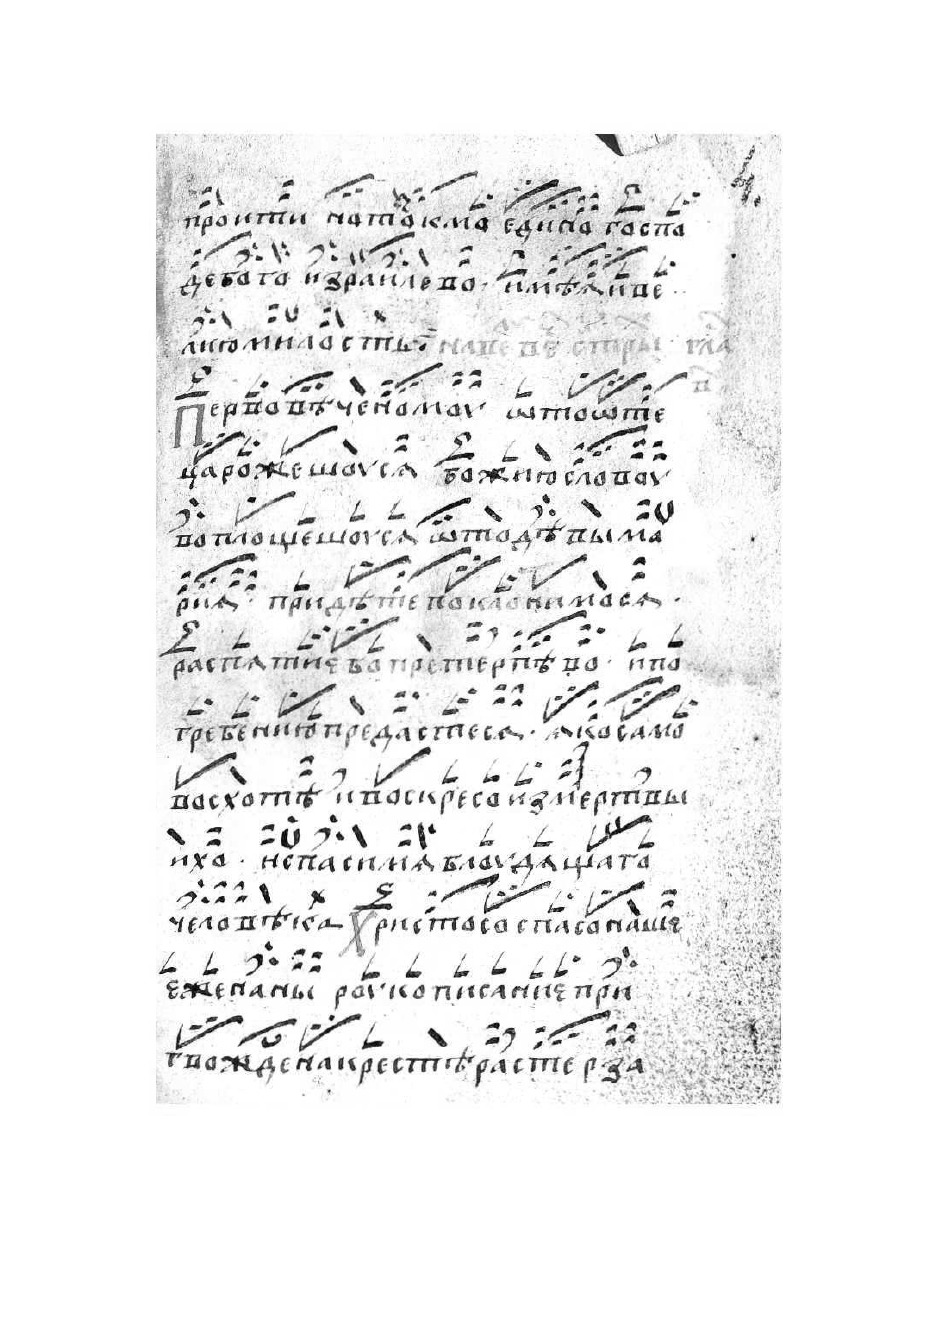 проити нотокмо едино госпо
дебого израилево · имѣяиве
люмилость · навевѣ стры гла
в
Перворѣченомоу ѿтоѿте
царожешоуся божиюсловоу
воплощешоуся ѿтодѣвыма
рия · придѣте поклонимося ·
распятиебо претерпѣво · ипо
гребениюпредастеся · якосамо
восхотѣ ивоскресоизмертвы
ихо · испасимяблоудящаго
человѣка Христосо спасонаше
еженаны роукописание при
гвожденакрестѣ растерза